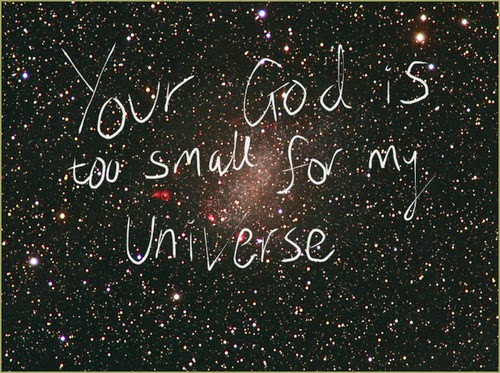 Your God is
too small for my
Universe